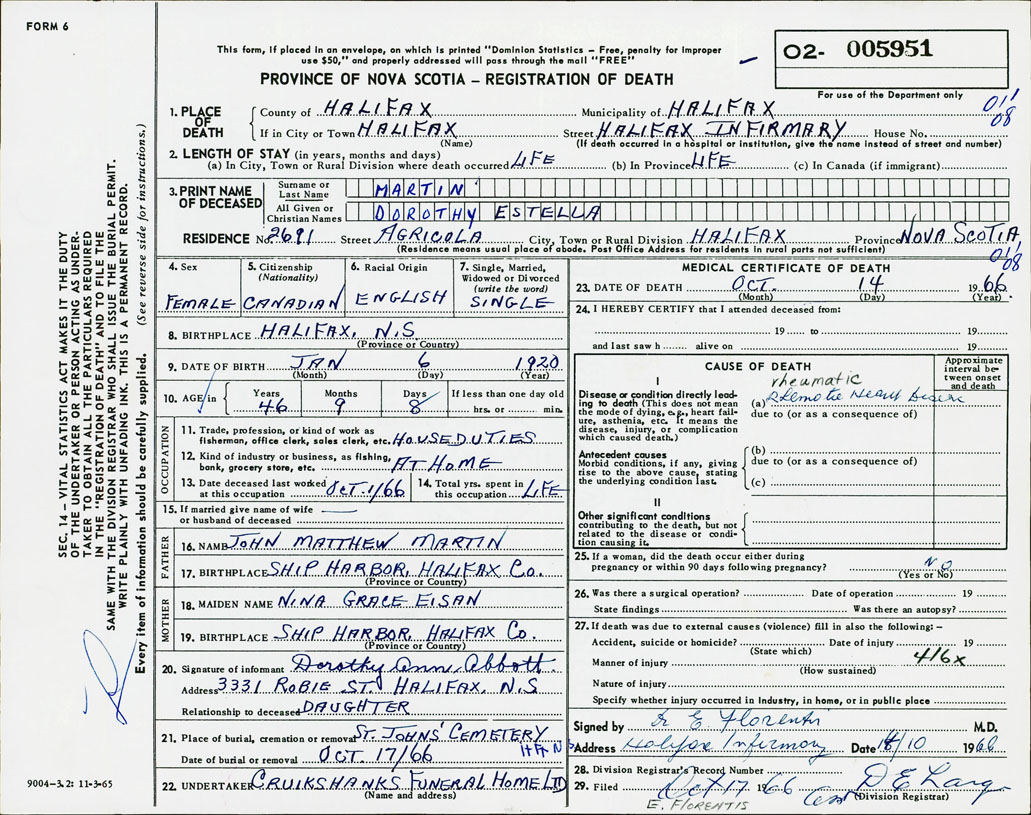 FORM 6
This form, if placed in an envelope, on which is printed "Dominion Statistics – Free, penalty for improper
use $50," and properly addressed will pass through the mail "FREE"
PROVINCE OF NOVA SCOTIA – REGISTRATION OF DEATH
O2- 005951
For use of the Department only
011
08
1. PLACE OF DEATH
County of HALIFAX Municipality of HALIFAX
If in City or Town HALIFAX Street HALIFAX INFIRMARY House No.
(Name) (If death occurred in a hospital or institution, give the name instead of street and number)
2. LENGTH OF STAY (in years, months and days)
(a) In City, Town or Rural Division where death occurred LIFE (b) In Province LIFE (c) In Canada (if immigrant)
3. PRINT NAME OF DECEASED
Surname or Last Name MARTIN
All Given or Christian Names DOROTHY ESTELLA
RESIDENCE No 2691 Street AGRICOLA City, Town or Rural Division HALIFAX Province NOVA SCOTIA
(Residence means usual place of abode. Post Office Address for residents in rural parts not sufficient)
011
08
4. Sex FEMALE
5. Citizenship (Nationality) CANADIAN
6. Racial Origin ENGLISH
7. Single, Married, Widowed or Divorced (write the word) SINGLE
8. BIRTHPLACE HALIFAX, N.S.
(Province or Country)
9. DATE OF BIRTH JAN 6 1920
(Month) (Day) (Year)
10. AGE in Years 46 Months 9 Days 8 If less than one day old hrs. or min.
OCCUPATION
11. Trade, profession, or kind of work as
fisherman, office clerk, sales clerk, etc. HOUSE DUTIES
12. Kind of industry or business, as fishing,
bank, grocery store, etc. AT HOME
13. Date deceased last worked at this occupation OCT. 1/66
14. Total yrs. spent in this occupation LIFE
15. If married give name of wife
or husband of deceased
FATHER
16. NAME JOHN MATTHEW MARTIN
17. BIRTHPLACE SHIP HARBOR, HALIFAX CO.
(Province or Country)
MOTHER
18. MAIDEN NAME NINA GRACE EISAN
19. BIRTHPLACE SHIP HARBOR, HALIFAX CO.
(Province or Country)
20. Signature of informant Dorothy Ann Abbott
Address 3331 ROBIE ST. HALIFAX, N.S
Relationship to deceased DAUGHTER
21. Place of burial, cremation or removal ST. JOHNS' CEMETERY
Date of burial or removal OCT. 17/66
22. UNDERTAKER CRUIKSHANKS FUNERAL HOME LTD
(Name and address)
MEDICAL CERTIFICATE OF DEATH
23. DATE OF DEATH OCT. 14 1966
(Month) (Day) (Year)
24. I HEREBY CERTIFY that I attended deceased from:
19 to 19
and last saw h alive on 19
CAUSE OF DEATH
Approximate interval between onset and death
I
Disease or condition directly leading to death (This does not mean
the mode of dying, e.g., heart failure, asthenia, etc. It means the
disease, injury, or complication
which caused death.)
rheumatic
(a) Heart Disease
due to (or as a consequence of)
Antecedent causes
Morbid conditions, if any, giving
rise to the above cause, stating
the underlying condition last.
(b)
due to (or as a consequence of)
(c)
II
Other significant conditions
contributing to the death, but not
related to the disease or condition causing it.
25. If a woman, did the death occur either during
pregnancy or within 90 days following pregnancy? NO
(Yes or No)
26. Was there a surgical operation? Date of operation 19
State findings Was there an autopsy?
27. If death was due to external causes (violence) fill in also the following: –
Accident, suicide or homicide? Date of injury 19
(State which)
416x
Manner of injury
(How sustained)
Nature of injury
Specify whether injury occurred in industry, in home, or in public place
Signed by Dr E. Florentis M.D.
Address Halifax Infirmary Date 18/10 1966
28. Division Registrar's Record Number
29. Filed Oct 17 1966
(Division Registrar)
E. FLORENTIS
SEC. 14 – VITAL STATISTICS ACT MAKES IT THE DUTY
OF THE UNDERTAKER OR PERSON ACTING AS UNDER-
TAKER TO OBTAIN ALL THE PARTICULARS REQUIRED
IN THE "REGISTRATION OF DEATH" AND TO FILE THE
SAME WITH THE DIVISION REGISTRAR WHO SHALL ISSUE THE BURIAL PERMIT.
WRITE PLAINLY WITH UNFADING INK. THIS IS A PERMANENT RECORD.
Every item of information should be carefully supplied. (See reverse side for instructions.)
9004-3.2: 11-3-65